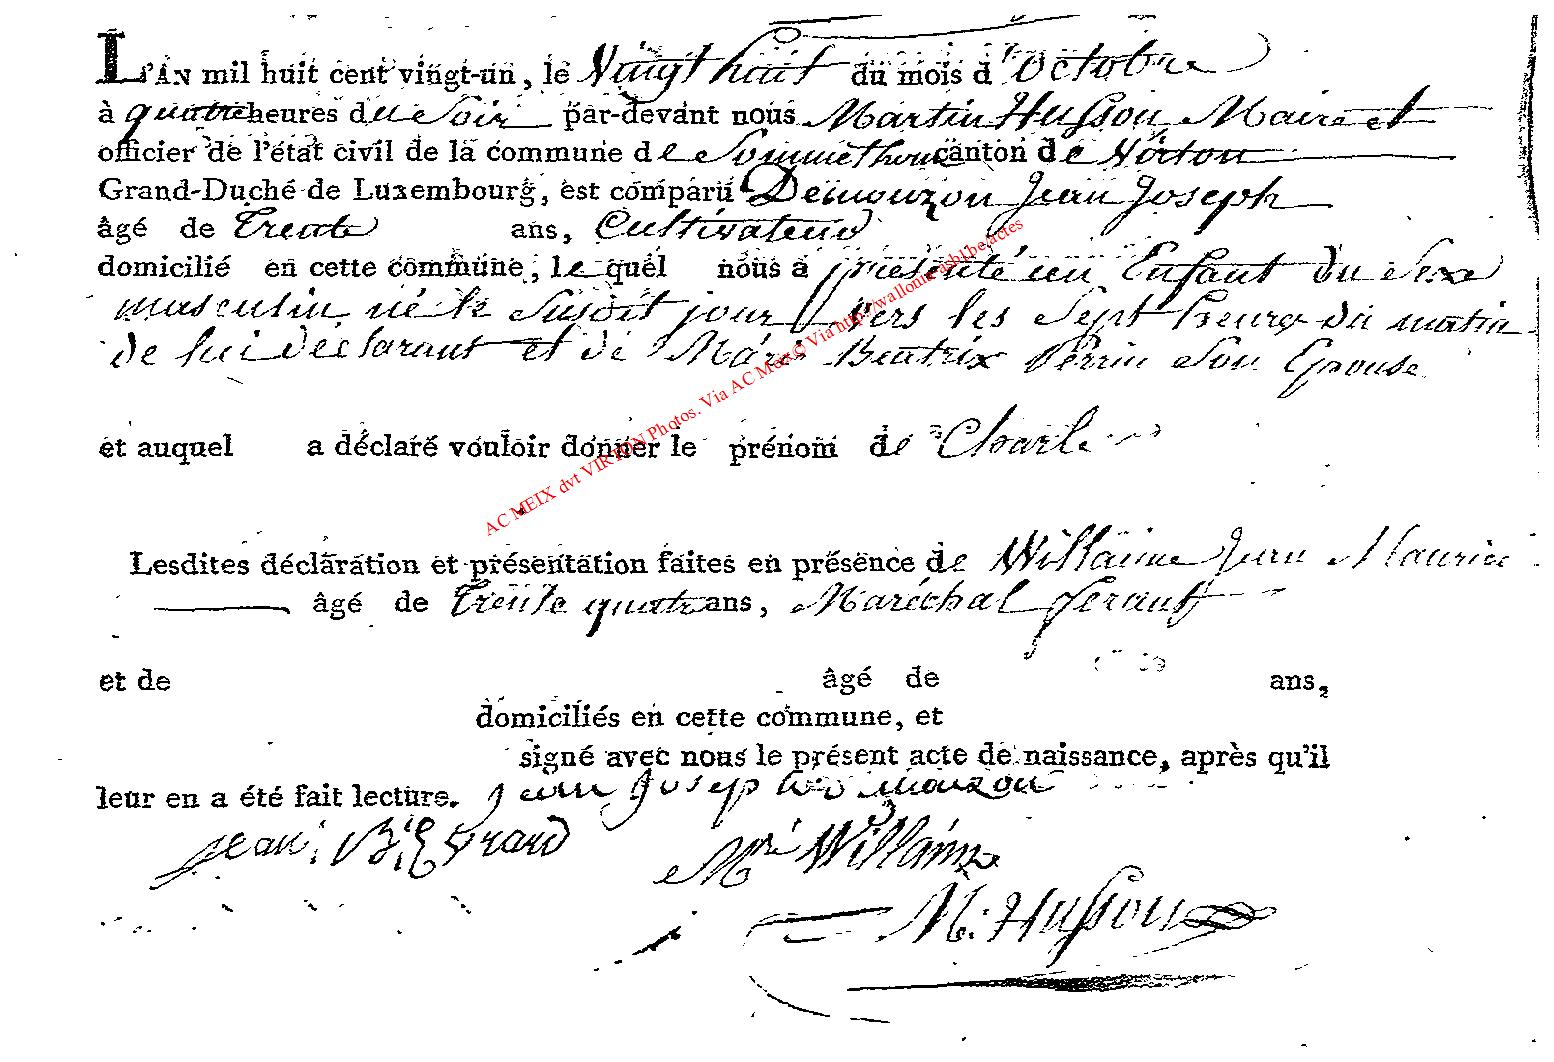 L'AN mil huit cent vingt-un, le Vingt huit du mois d'Octobre
à quatre heures du Soir par-devant nous Martin Husson Maire et
officier de l'état civil de la commune de Sommethonne canton de Virton
Grand-Duché de Luxembourg, est comparu Demouzon Jean Joseph
âgé de Trente ans, Cultivateur
domicilié en cette commune, le quel nous a présenté un Enfant du Sexe
masculin né le Susdit jour Vers les Sept heures du matin
de lui déclarant et de Marie Beatrix Perrin Son Epouse
et auquel a déclaré vouloir donner le prénom de Charle
AC MEIX dvt VIRTON Photos. Via AC Meix© Via http://wallonia-asbl.be.actes
Lesdites déclaration et présentation faites en présence de Willaime Jean Maurice
âgé de Trente quatre ans, Maréchal ferant
et de âgé de ans,
domiciliés en cette commune, et
signé avec nous le présent acte de naissance, après qu'il
leur en a été fait lecture. jean Josep
jean. B. Evrard Mce Willaime
M. Husson